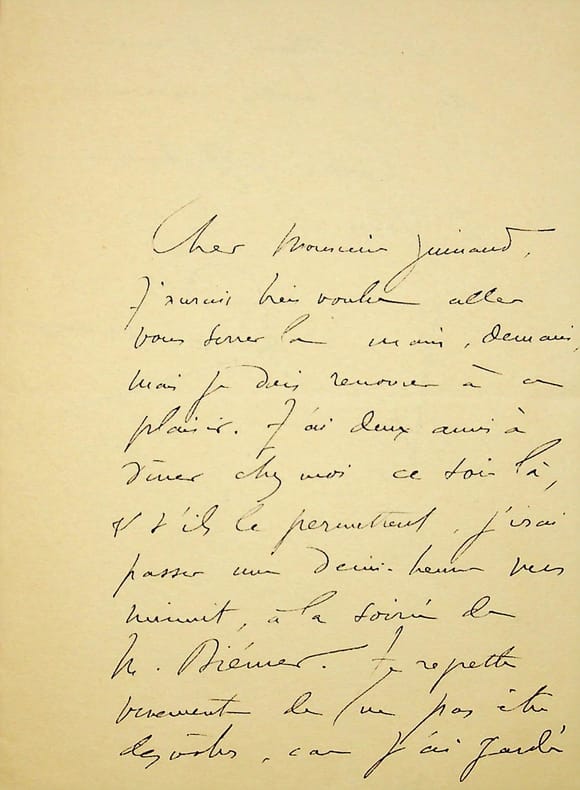 Cher Monsieur Guinand,
J'aurais bien voulu aller
vous serrer la main, demain,
mais je dois renoncer à ce
plaisir. J'ai deux amis à
dîner chez moi ce soir là,
& s'ils le permettent, j'irai
passer une demi-heure vers
minuit, à la soirée de
M. Diémer. Je regrette
vivement de ne pas être
des vôtres, car j'ai gardé